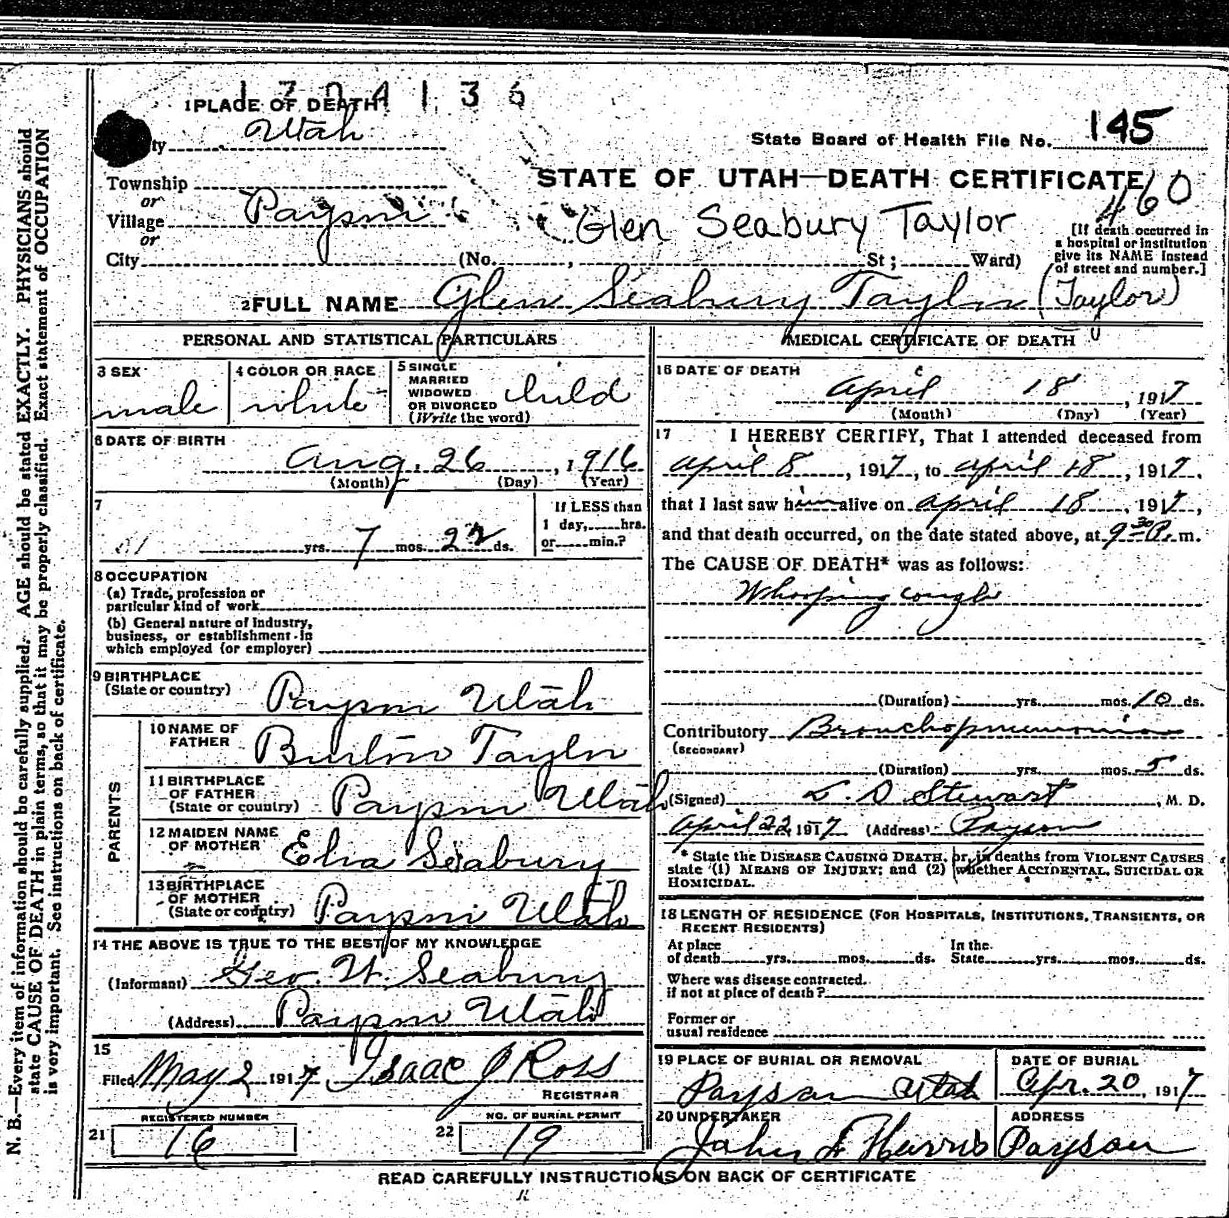 1704136
1 PLACE OF DEATH
ty Utah
State Board of Health File No. 145
Township
or
Village Payson
or
City (No. , St; Ward)
STATE OF UTAH—DEATH CERTIFICATE
460
Glen Seabury Taylor
[If death occurred in
a hospital or institution
give its NAME instead
of street and number.]
2 FULL NAME Glen Seabury Taylor (Taylor)
PERSONAL AND STATISTICAL PARTICULARS
3 SEX male
4 COLOR OR RACE white
5 SINGLE
MARRIED
WIDOWED
OR DIVORCED
(Write the word) child
6 DATE OF BIRTH
Aug. 26, 1916
(Month) (Day) (Year)
7
yrs. 7 mos. 22 ds.
If LESS than
1 day, hrs.
or min.?
8 OCCUPATION
(a) Trade, profession or
particular kind of work
(b) General nature of Industry,
business, or establishment in
which employed (or employer)
9 BIRTHPLACE
(State or country) Payson Utah
PARENTS
10 NAME OF
FATHER Burton Taylor
11 BIRTHPLACE
OF FATHER
(State or country) Payson Utah
12 MAIDEN NAME
OF MOTHER Seabury
13 BIRTHPLACE
OF MOTHER
(State or country) Payson Utah
14 THE ABOVE IS TRUE TO THE BEST OF MY KNOWLEDGE
(Informant) Geo. W. Seabury
(Address) Payson Utah
15
Filed May 2 1917 Isaac J Ross
REGISTRAR
REGISTERED NUMBER
21 16
NO. OF BURIAL PERMIT
22 19
MEDICAL CERTIFICATE OF DEATH
16 DATE OF DEATH
April 18, 1917
(Month) (Day) (Year)
17 I HEREBY CERTIFY, That I attended deceased from
April 8, 1917, to April 18, 1917,
that I last saw him alive on April 18, 1917,
and that death occurred, on the date stated above, at 9 30 P. m.
The CAUSE OF DEATH* was as follows:
Whooping cough
(Duration) yrs. mos. 10 ds.
Contributory Bronchopneumonia
(SECONDARY)
(Duration) yrs. mos. 5 ds.
(Signed) L. D Stewart, M. D.
April 22, 1917 (Address) Payson
* State the DISEASE CAUSING DEATH, or, in deaths from VIOLENT CAUSES
state (1) MEANS OF INJURY; and (2) whether ACCIDENTAL, SUICIDAL OR
HOMICIDAL.
18 LENGTH OF RESIDENCE (FOR HOSPITALS, INSTITUTIONS, TRANSIENTS, OR
RECENT RESIDENTS)
At place
of death yrs. mos. ds.
In the
State yrs. mos. ds.
Where was disease contracted.
if not at place of death?
Former or
usual residence
19 PLACE OF BURIAL OR REMOVAL
Payson Utah
DATE OF BURIAL
Apr. 20, 1917
20 UNDERTAKER
John Harris
ADDRESS
Payson
READ CAREFULLY INSTRUCTIONS ON BACK OF CERTIFICATE
N. B.—Every item of information should be carefully supplied. AGE should be stated EXACTLY. PHYSICIANS should
state CAUSE OF DEATH in plain terms, so that it may be properly classified. Exact statement of OCCUPATION
is very important. See instructions on back of certificate.